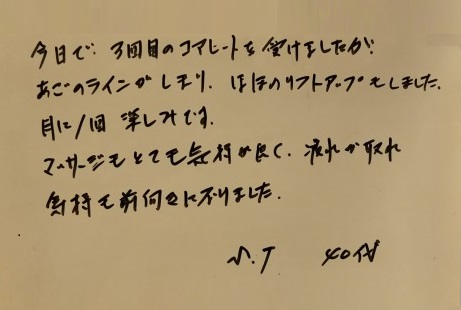 今日で、3回目のコアヒートを受けましたが、
あごのラインがしまり、ほほのリフトアップもしました。
月に1回楽しみです。
マッサージもとても気持が良く、疲れが取れ
気持も前向きに不りました。
S.T 40代